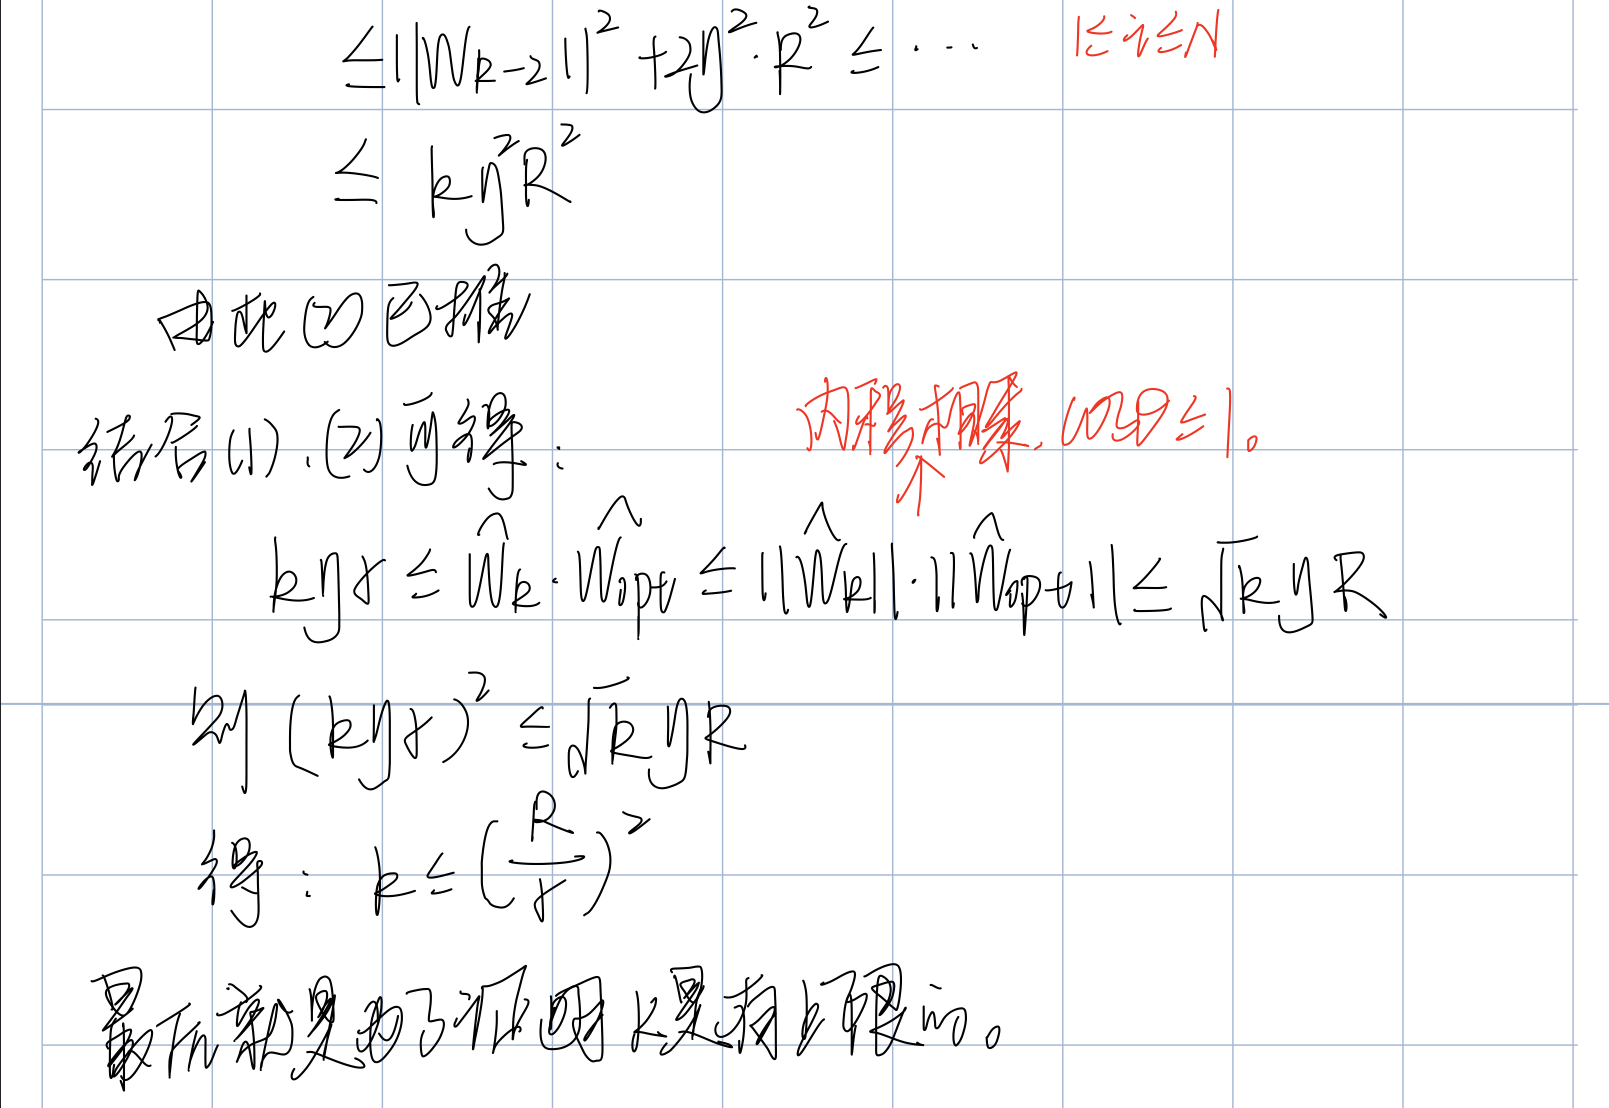 ≤||W_{k-2}||² + 2η²·R² ≤ ··· 1≤i≤N
≤ kη²R²
由此(2)已推
结合(1)、(2)可得:
内积相乘, cosθ≤1。
↑
kηγ ≤ Ŵ_k·Ŵ_opt ≤ ||Ŵ_k||·||Ŵ_opt|| ≤ √k ηR
则 (kηγ)² ≤ √k ηR
得: k ≤ (R/γ)²
最后就是为了证明k是有上限的。